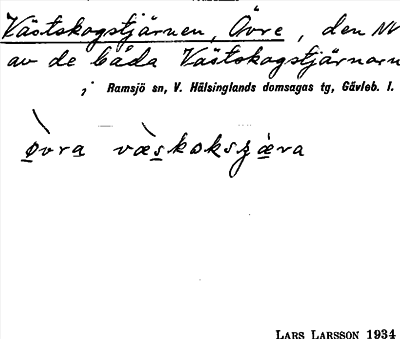 Västskogstjärnen, Övre, den NV
av de båda Västskogstjärnarn
i Ramsjö sn, V. Hälsinglands domsagas tg, Gävleb. l.
øvra væskoksʒæra
LARS LARSSON 1934